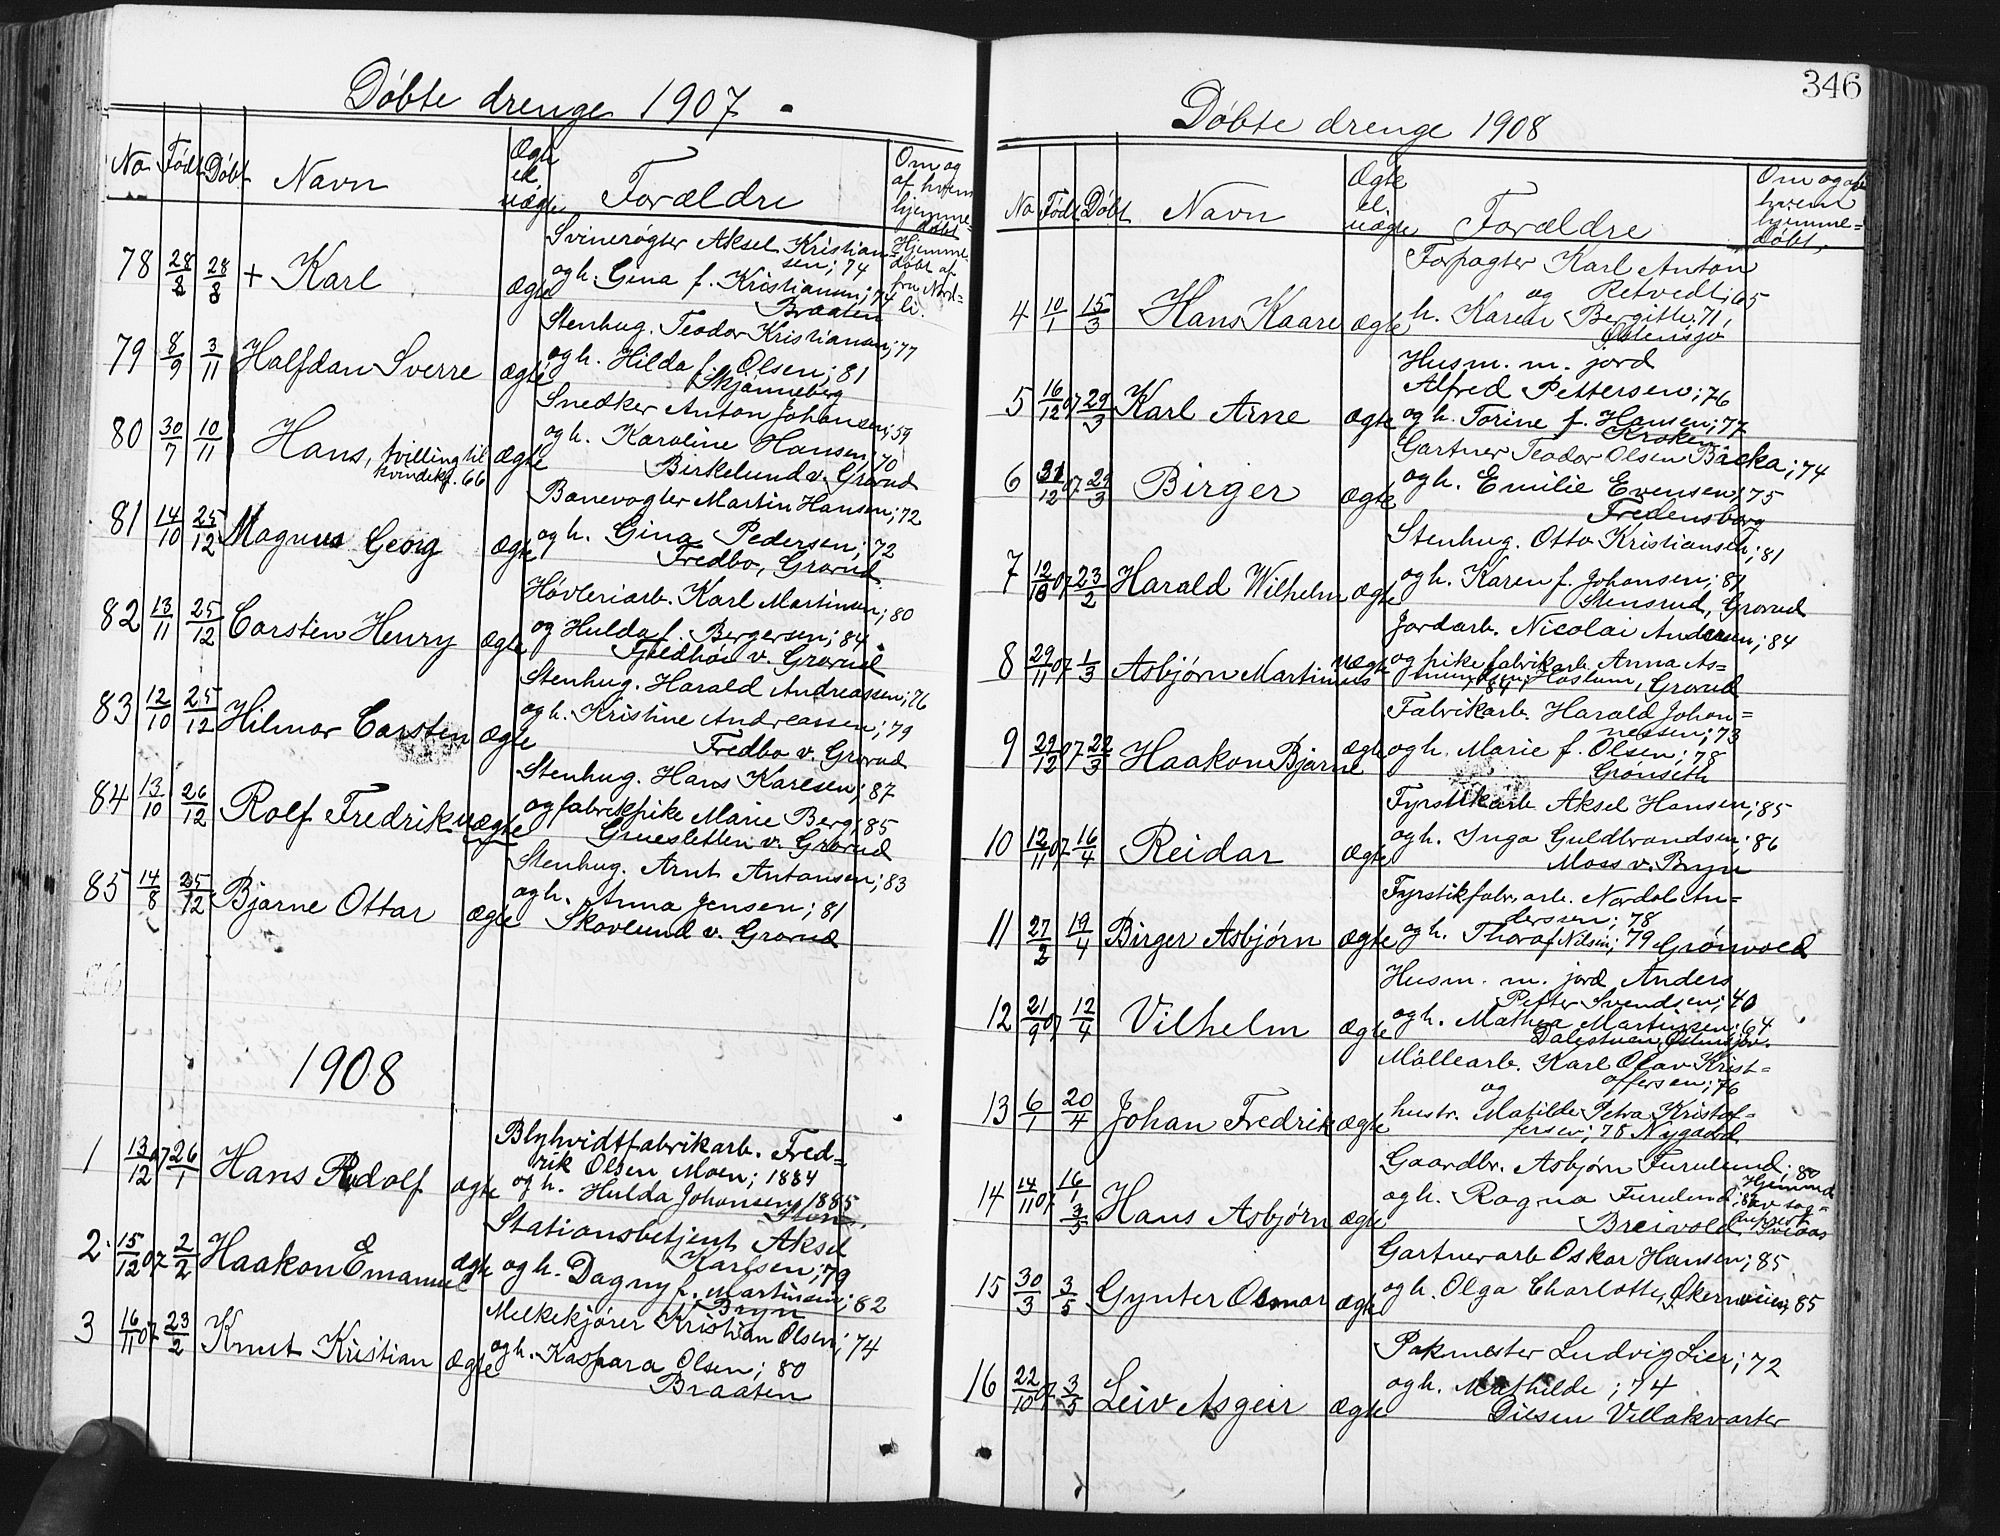 Døbte drenge 1907.
No Født Døbt Navn Ægte el. uægte Forældre Om og af hvem hjemme=døbt
Svinerøgter Aksel Kristian=
78 28/8 28/8 + Karl ægte sen; 74
og h. Gina f. Kristiansen; 74
Braaten
Hjemme døbt af fru Nord=li.
Stenhug. Teodor Kristiansen; 77
79 8/9 3/11 Halfdan Sverre ægte og h. Hilda f. Olsen; 81
Skjønneberg
Snedker Anton Johansen; 59
80 30/7 10/11 Hans, tvilling til ægte og h. Karoline Hansen; 70
kvindekj. 66 Birkelund v. Grorud
Banevogter Martin Hansen; 72
81 14/10 25/12 Magnus Georg ægte og h. Gina Pedersen; 72
Fredbo, Grorud
Høvleriarb. Karl Martinsen; 80
82 13/11 25/12 Carsten Henry ægte og Hulda f. Bergersen; 84
v. Grorud
Stenhug. Harald Andreassen; 76
83 12/10 25/12 Hilmar Carsten ægte og h. Kristine Andreassen; 79
Fredbo v. Grorud
Stenhug. Hans Karlsen; 87
84 13/10 26/12 Rolf Fredrik uægte og fabrikpike Marie Berg; 85
Gruesletten v. Grorud
Stenhug. Arnt Antonsen; 83
85 14/8 25/12 Bjarne Ottar ægte og h. Anna Jensen; 81
Skovlund v. Grorud
1908
Blyhvidtfabrikarb. Fred=
1 13/12 07 26/1 Hans Rudolf ægte rik Olsen Moen; 1884
og h. Hulda Johansen; 1885
Stationsbetjent Aksel
2. 15/12 07 2/2 Haakon Emanuel ægte Karlsen; 79
og h. Dagny f. Martinsen; 82
Bryn
Melkekjører Kristian Olsen; 74
3 16/11 07 23/2 Knut Kristian ægte og h. Kaspara Olsen; 80
Braaten
346
Døbte drenge 1908
No Født Døbt Navn Ægte el. uægte Forældre Om og af hvem hjemme=døbt,
Forpagter Karl Anton
4 10/1 15/3 Hans Kaare ægte og Retvedt; 65
h. Karen Bergitte; 71,
Østensjø
Husm. m. jord
Alfred Pettersen; 76
5 16/12 07 29/3 Karl Arne ægte og h. Torine f. Hansen; 77
Kroken
Gartner Teodor Olsen Bakka; 74
6 31/12 07 29/3 Birger ægte og h. Emilie Evensen; 75
Fredensborg
Stenhug. Otto Kristiansen; 81
7 12/10 07 23/2 Harald Wilhelm ægte og h. Karen f. Johansen; 81
Stensrud, Grorud
Jordarb. Nicolai Andersen; 84
8 29/11 07 1/3 Asbjørn Martinius uægte og pike fabrikarb. Anna As=
mundsen; 84; Haslum, Grorud
Fabrikarb. Harald Johan=
nessen; 73
9 29/12 07 22/3 Haakon Bjarne ægte og h. Marie f. Olsen; 78
Grønseth
Fyrstikarb. Aksel Hansen; 85
10 12/11 07 16/4 Reidar ægte og h. Inga Guldbrandsen; 86
Moss v. Bryn
Fyrstikfabr. arb. Nordal An=
derssen; 78
11 27/2 19/4 Birger Asbjørn ægte og h. Thora f. Nilsen; 79 Grønvold
Husm. m. jord Anders
Petter Svendsen; 40
12 21/9 07 12/4 Vilhelm ægte og h. Mathea Martinsen; 64
Dalestuen, Østensjøv.
Møllearb. Karl Olav Krist=
og offersen; 76
13 6/1 20/4 Johan Fredrik ægte hustr. Matilde Petra Kristof=
fersen; 78 Nygaard
Gaardbr. Asbjørn Furulund; 80
14 14/11 07 16/1 3/5 Hans Asbjørn ægte og h. Ragna Furulund; 82
Breivold
Hjemmed. av sog=neprest Sveaas
Gartnerarb Oskar Hansen; 85
15 30/3 3/5 Gynter Osmar ægte og h. Olga Charlotte, Økernveien; 85
Pakmester Ludvig Lier; 72
16 22/10 07 3/5 Leiv Asgeir ægte og h. Mathilde; 74
Dilsen Villakvarter